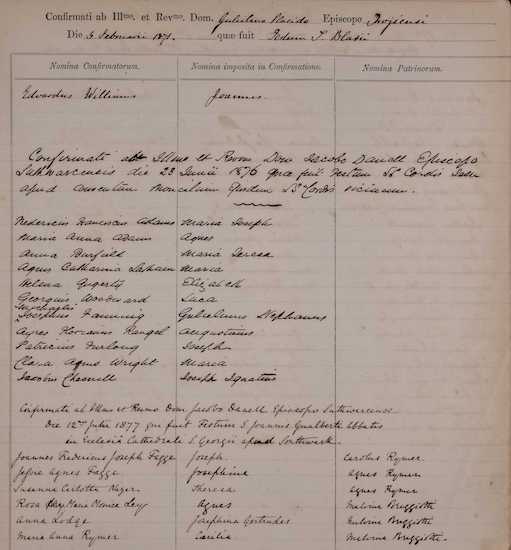 Confirmati ab Illmo. et Revmo. Dom. Gulielmo Placido Episcopo
Die 3 Februarii 1871. quæ fuit Festum S. Blasii
Nomina Confirmatorum. Nomina imposita in Confirmatione. Nomina Patrinorum.
Edvardus Williams Joannes
Confirmati ab Illmo et Revmo Dom Jacobo Danell Episcopo
die 23 Junii 1876 quæ fuit Festum SS Cordis Jesu
apud
Fredericus Franciscus Adams Maria Joseph
Maria Anna Adams Agnes
Anna Maria Teresa
Agnes Catharina Maria
Helena Elizabeth
Georgius Woodward Luca
Josephus Fanning Gulielmus Stephanus
Agnes Rangel Augustinus
Patricius Furlong Joseph
Clara Agnes Wright Maria
Jacobus Joseph Ignatius
Confirmati ab Illmo et Revmo Dom Jacobo Danell Episcopo Suthwarcensi
Die 12ma Julii 1877 quæ fuit Festum S Joannis Gualberti Abbatis
in Ecclesia Cathedrali S Georgii apud Southwark.
Joannes Fredericus Joseph Fagge Joseph. Carolus Rymer
Agnes Fagge Josephine Agnes Rymer
Susanna Carlotta Theresa Agnes Rymer
Rosa Agnes Bruggiotti
Anna Lodge Josephina Gertrudes Bruggiotti
Maria Anna Rymer Cecilia Bruggiotti